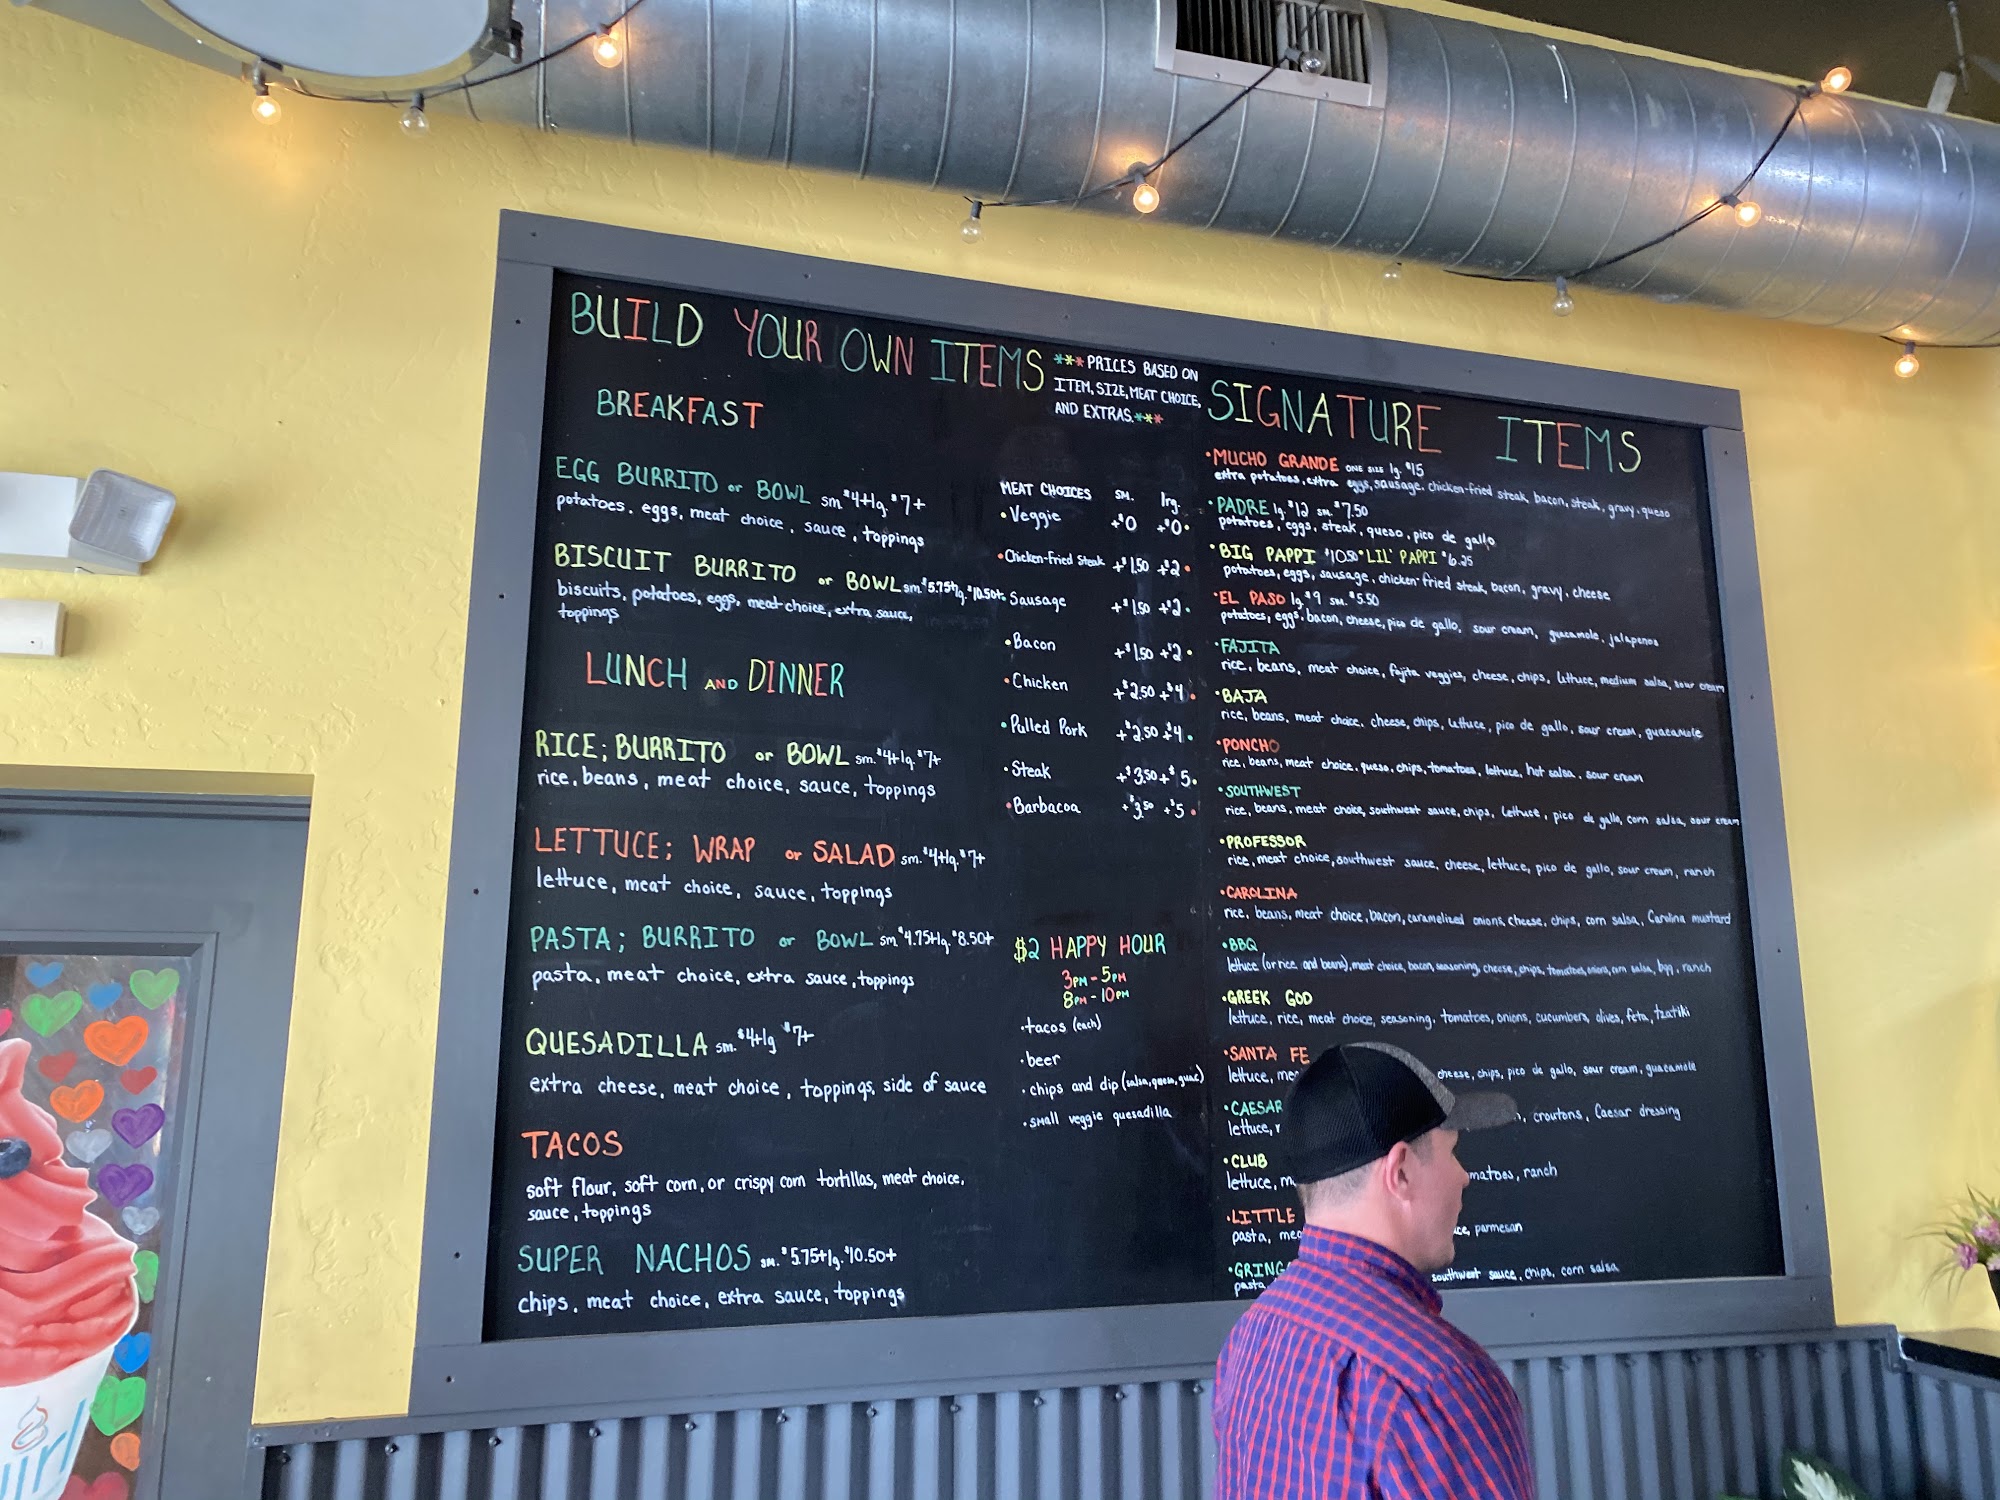 BUILD YOUR OWN ITEMS
***PRICES BASED ON
ITEM, SIZE, MEAT CHOICE,
AND EXTRAS.***
BREAKFAST
EGG BURRITO or BOWL sm $4+ lg. $7+
potatoes, eggs, meat choice, sauce, toppings
BISCUIT BURRITO or BOWL sm. $5.75+ lg. $10.50+
biscuits, potatoes, eggs, meat choice, extra sauce,
toppings
LUNCH AND DINNER
RICE; BURRITO or BOWL sm. $4+ lg. $7+
rice, beans, meat choice, sauce, toppings
LETTUCE; WRAP or SALAD sm. $4+ lg. $7+
lettuce, meat choice, sauce, toppings
PASTA; BURRITO or BOWL sm $4.75+ lg. $8.50+
pasta, meat choice, extra sauce, toppings
QUESADILLA sm. $4+ lg $7+
extra cheese, meat choice, toppings, side of sauce
TACOS
soft flour, soft corn, or crispy corn tortillas, meat choice,
sauce, toppings
SUPER NACHOS sm. $5.75+ lg. $10.50+
chips, meat choice, extra sauce, toppings
MEAT CHOICES SM. lrg.
•Veggie +$0 +$0•
•Chicken-Fried Steak +$1.50 +$2•
Sausage +$1.50 +$2•
•Bacon +$1.50 +$2•
•Chicken +$2.50 +$4•
•Pulled Pork +$2.50 +$4•
•Steak +$3.50 +$5•
•Barbacoa +$3.50 +$5•
$2 HAPPY HOUR
3PM-5PM
8PM-10PM
•tacos (each)
•beer
•chips and dip (salsa, queso, guac)
•small veggie quesadilla
SIGNATURE ITEMS
•MUCHO GRANDE ONE SIZE lg. $15
extra potatoes, extra eggs, sausage, chicken-fried steak, bacon, steak, gravy, queso
•PADRE lg. $12 sm. $7.50
potatoes, eggs, steak, queso, pico de gallo
•BIG PAPPI $10.50 •LIL' PAPPI $6.25
potatoes, eggs, sausage, chicken-fried steak, bacon, gravy, cheese
•EL PASO lg. $9 sm. $5.50
potatoes, eggs, bacon, cheese, pico de gallo, sour cream, guacamole, jalapenos
•FAJITA
rice, beans, meat choice, fajita veggies, cheese, chips, lettuce, medium salsa, sour cream
•BAJA
rice, beans, meat choice, cheese, chips, lettuce, pico de gallo, sour cream, guacamole
•PONCHO
rice, beans, meat choice, queso, chips, tomatoes, lettuce, hot salsa, sour cream
•SOUTHWEST
rice, beans, meat choice, southwest sauce, chips, lettuce, pico de gallo, corn salsa, sour cream
•PROFESSOR
rice, meat choice, southwest sauce, cheese, lettuce, pico de gallo, sour cream, ranch
•CAROLINA
rice, beans, meat choice, bacon, caramelized onions, cheese, chips, corn salsa, Carolina mustard
•BBQ
lettuce (or rice and beans), meat choice, bacon, seasoning, cheese, chips, tomatoes, onions, corn salsa, bbq, ranch
•GREEK GOD
lettuce, rice, meat choice, seasoning, tomatoes, onions, cucumbers, olives, feta, tzatiki
•SANTA FE
lettuce, cheese, chips, pico de gallo, sour cream, guacamole
•CAESAR
lettuce, croutons, Caesar dressing
•CLUB
lettuce, matoes, ranch
•LITTLE
pasta, parmesan
•GRING
pasta southwest sauce, chips, corn salsa